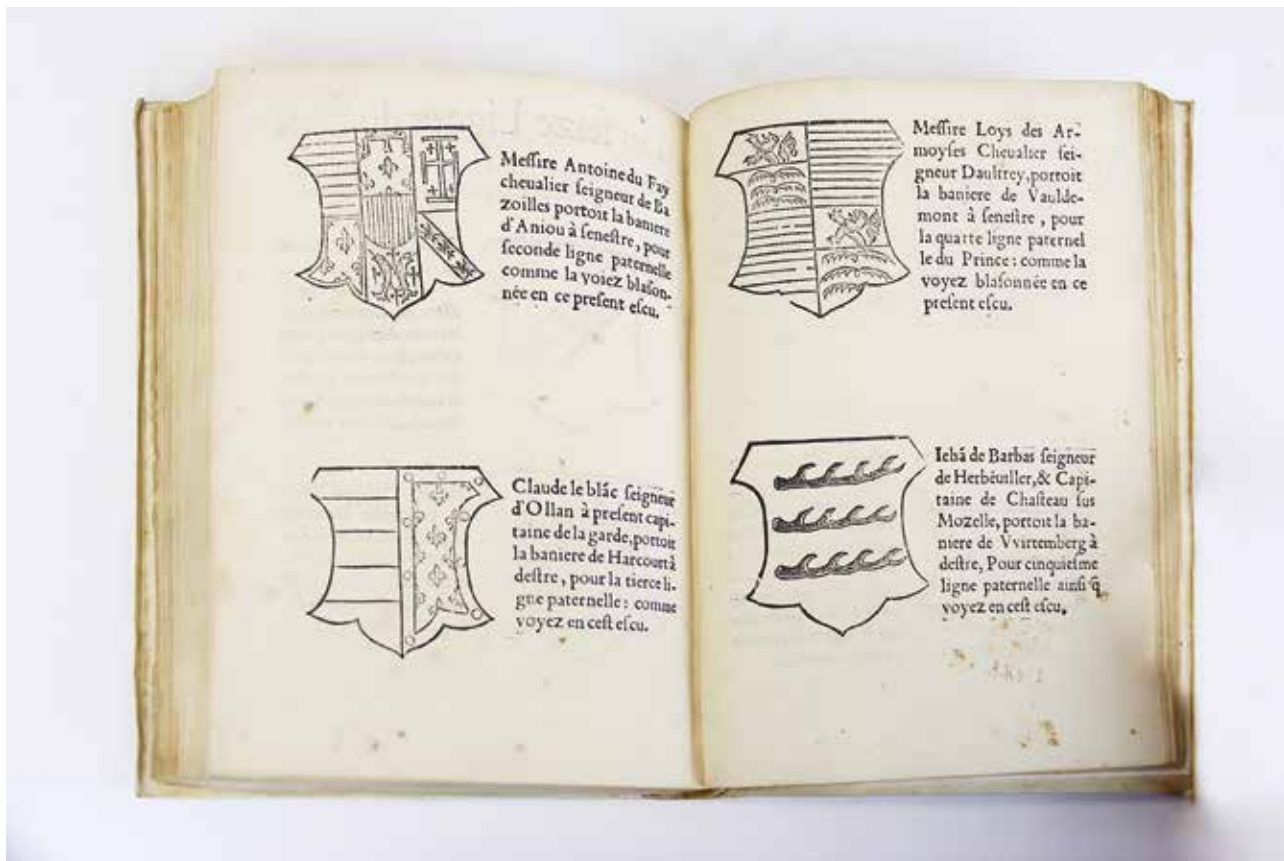 Meſſire Antoine du Fay
cheualier ſeigneur de Ba
zoilles portoit la baniere
d'Aniou à ſeneſtre, pour
ſeconde ligne paternelle
comme la voiez blaſon-
née en ce preſent eſcu.
Claude le blãc ſeigneur
d'Ollan à preſent capi-
taine de la garde, portoit
la baniere de Harcourt à
deſtre, pour la tierce li-
gne paternelle: comme
voyez en ceſt eſcu.
Meſſire Loys des Ar-
moyſes Cheualier ſei-
gneur Daultrey, portoit
la baniere de Vaulde-
mont à ſeneſtre, pour
la quarte ligne paternel
le du Prince: comme la
voyez blaſonnée en ce
preſent eſcu.
Iehã de Barbas ſeigneur
de Herbéuiller, & Capi-
taine de Chaſteau ſus
Mozelle, portoit la ba-
niere de Vvirtemberg à
deſtre, Pour cinquieſme
ligne paternelle ainſi q̃
voyez en ceſt eſcu.